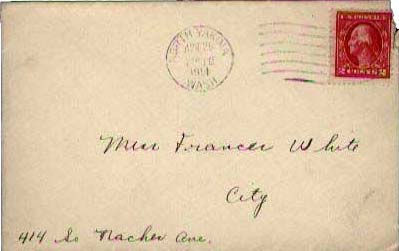 NORTH YAKIMA
1914
WASH
U.S. POSTAGE
2 CENTS 2
Miss Frances White
City
414 So Naches Ave.